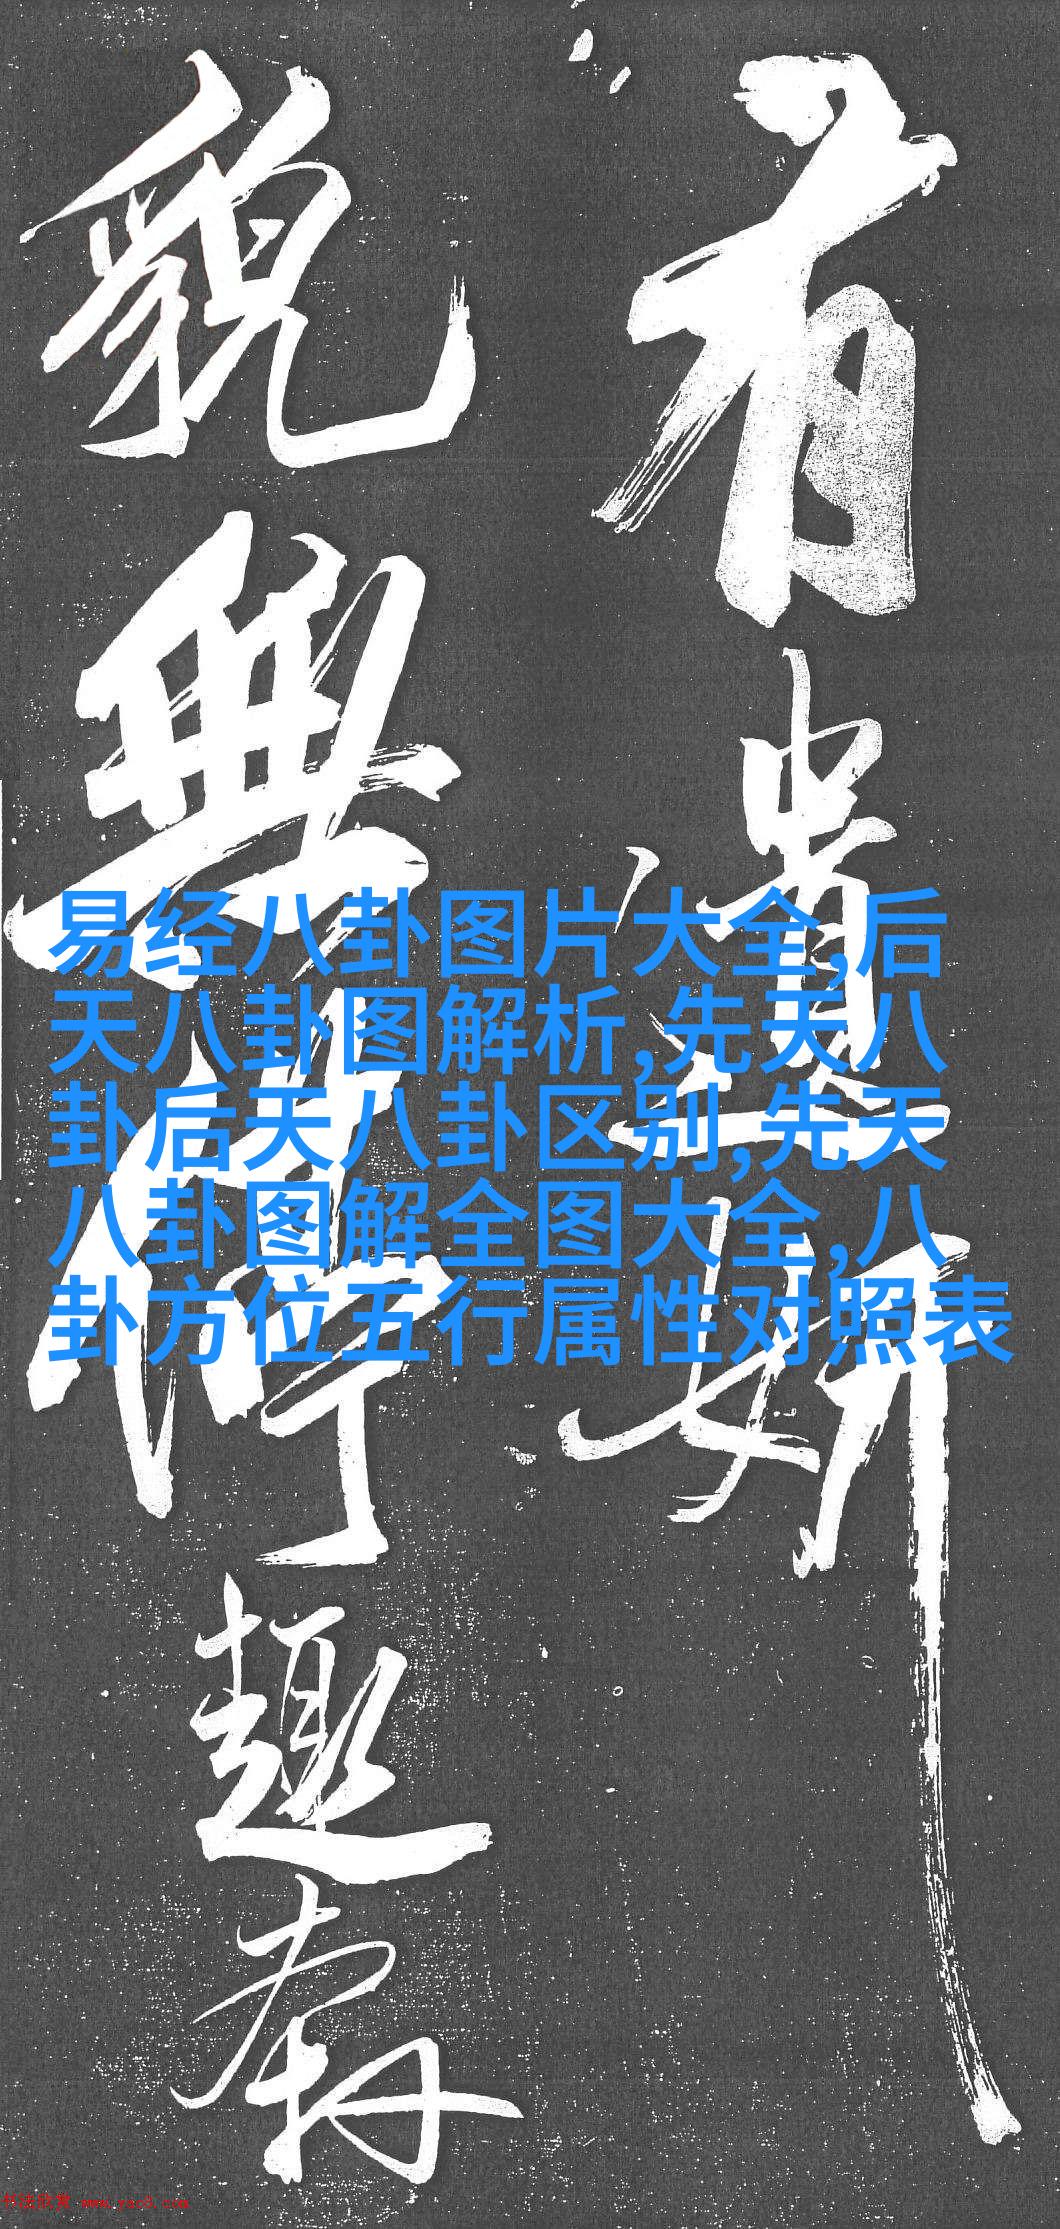 有遺妍
貌無停趣
易经八卦图片大全,后
天八卦图解析,先天八
卦后天八卦区别,先天
八卦图解全图大全,八
卦方位五行属性对照表
书法欣赏 www.yac8.com